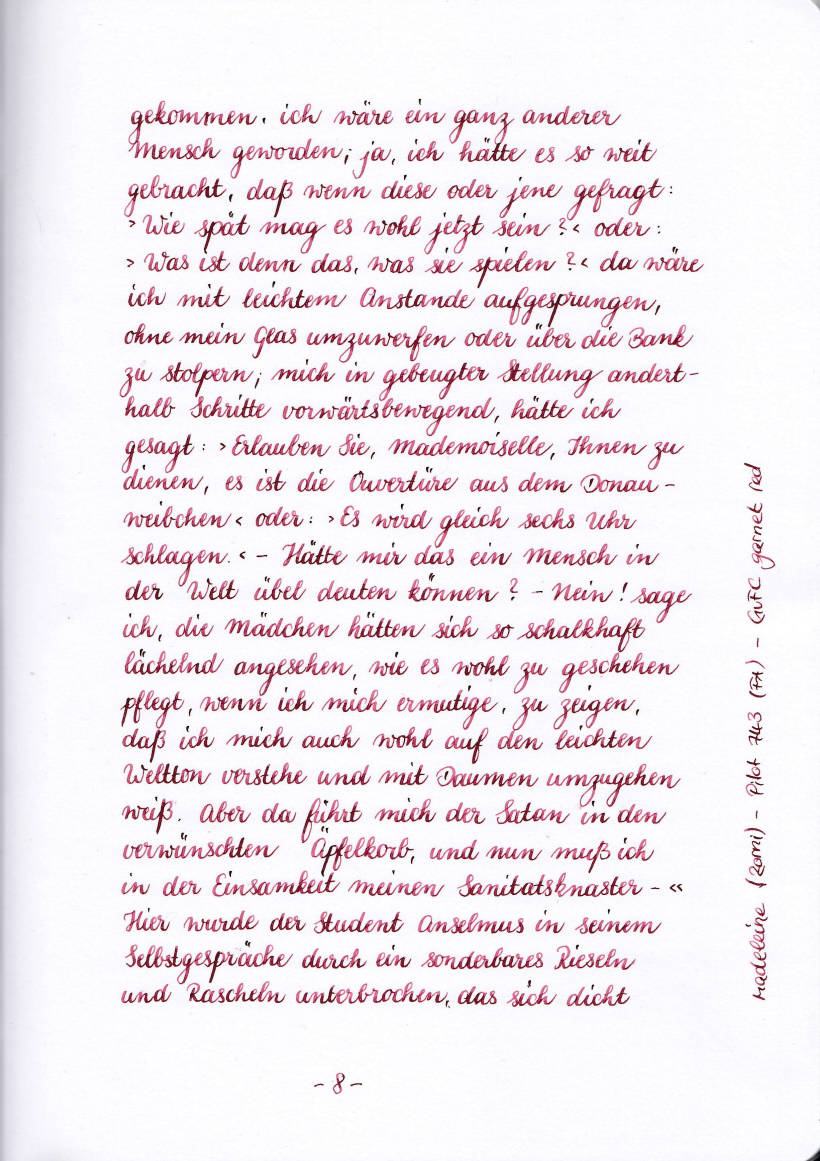 gekommen, ich wäre ein ganz anderer
Mensch geworden; ja, ich hätte es so weit
gebracht, daß wenn diese oder jene gefragt:
›Wie spät mag es wohl jetzt sein?‹ oder:
›Was ist denn das, was sie spielen?‹ da wäre
ich mit leichtem Anstande aufgesprungen,
ohne mein Glas umzuwerfen oder über die Bank
zu stolpern; mich in gebeugter Stellung andert-
halb Schritte vorwärtsbewegend, hätte ich
gesagt: ›Erlauben Sie, Mademoiselle, Ihnen zu
dienen, es ist die Ouvertüre aus dem Donau-
weibchen‹ oder: ›Es wird gleich sechs Uhr
schlagen.‹ – Hätte mir das ein Mensch in
der Welt übel deuten können? – Nein! sage
ich, die Mädchen hätten sich so schalkhaft
lächelnd angesehen, wie es wohl zu geschehen
pflegt, wenn ich mich ermutige, zu zeigen,
daß ich mich auch wohl auf den leichten
Weltton verstehe und mit Daumen umzugehen
weiß. Aber da führt mich der Satan in den
verwünschten Äpfelkorb, und nun muß ich
in der Einsamkeit meinen Sanitatsknaster – «
Hier wurde der Student Anselmus in seinem
Selbstgespräche durch ein sonderbares Rieseln
und Rascheln unterbrochen, das sich dicht
- 8 -
Madeleine (Zami) – Pilot 743 (FA) – GvFC garnet red